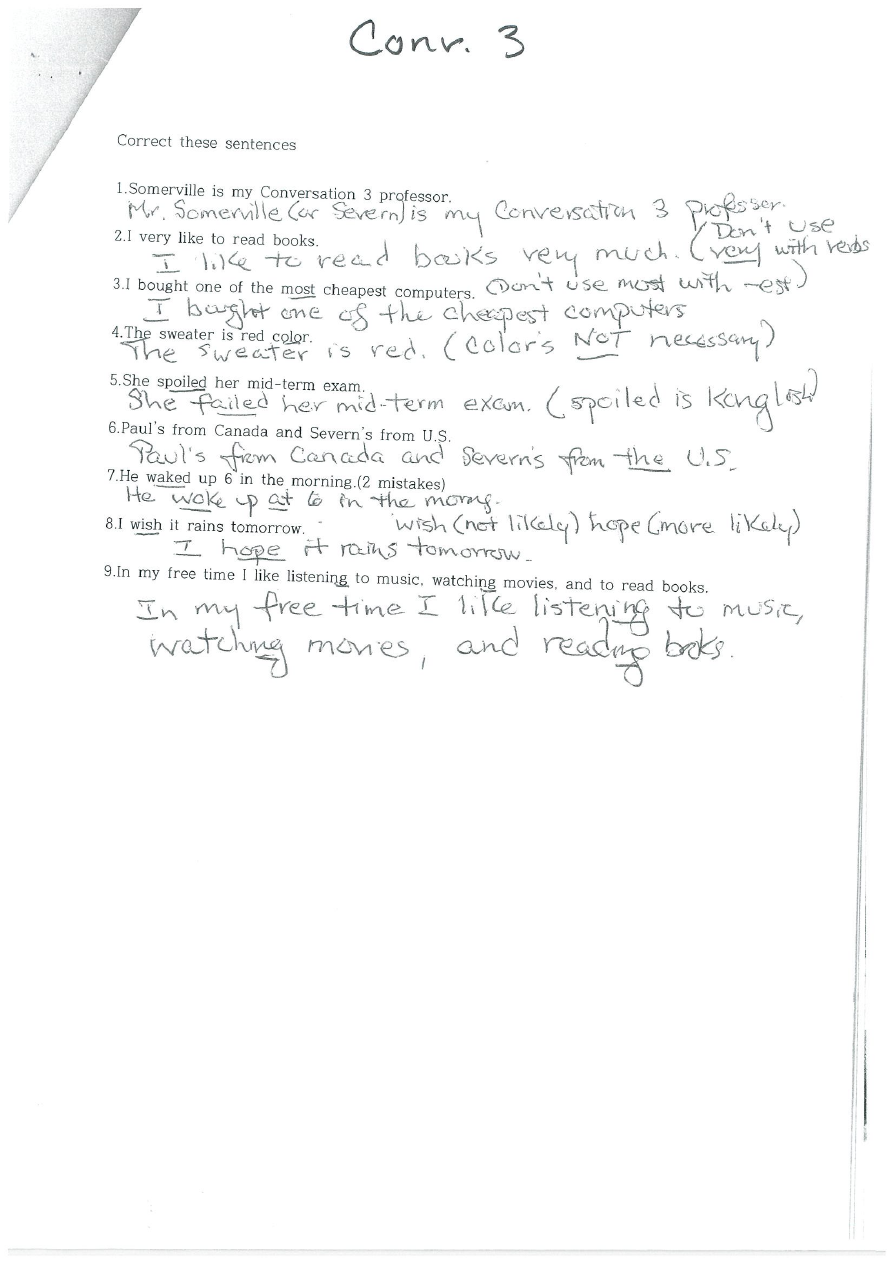 Conv. 3
Correct these sentences
1.Somerville is my Conversation 3 professor.
Mr. Somerville (or Severn) is my Conversation 3 professor.
2.I very like to read books.
(Don't use very with verbs
I like to read books very much.
3.I bought one of the most cheapest computers. (Don't use most with -est)
I bought one of the cheapest computers
4.The sweater is red color.
The sweater is red. (Color's NOT necessary)
5.She spoiled her mid-term exam.
She failed her mid-term exam. (spoiled is Konglish)
6.Paul's from Canada and Severn's from U.S.
Paul's from Canada and Severn's from the U.S.
7.He waked up 6 in the morning.(2 mistakes)
He woke up at 6 in the morng.
8.I wish it rains tomorrow. wish (not likely) hope (more likely)
I hope it rains tomorrow.
9.In my free time I like listening to music, watching movies, and to read books.
In my free time I like listening to music,
watching movies, and reading books.